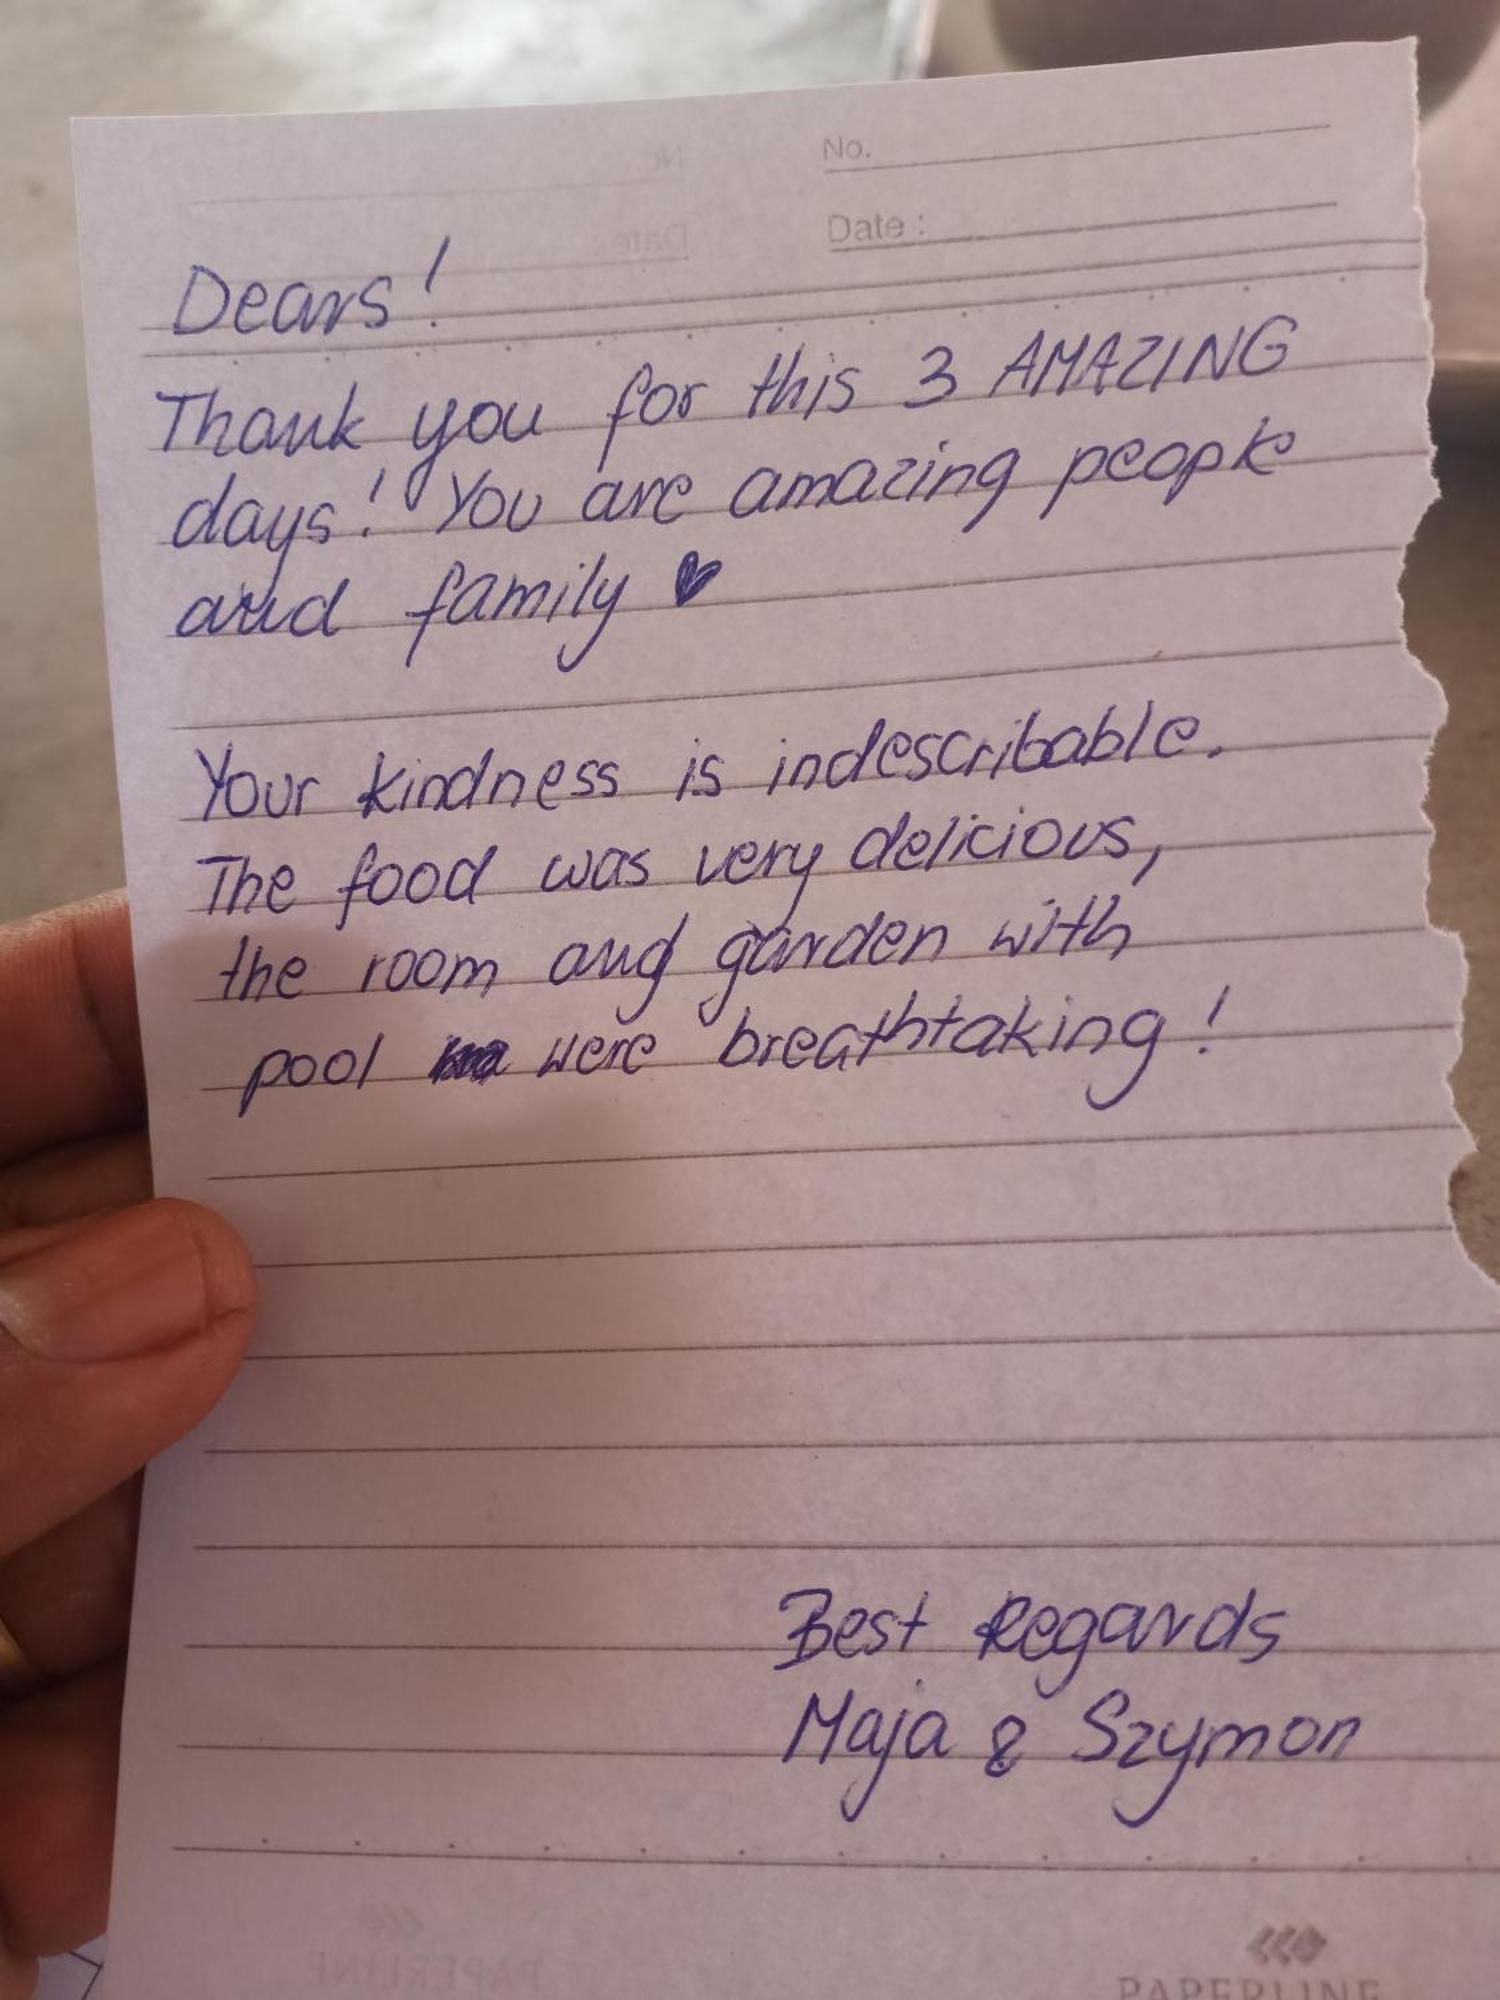 No.
Date :
Dears!
Thank you for this 3 AMAZING
days! You are amazing people
and family ♥
Your kindness is indescribable.
The food was very delicious,
the room and garden with
pool were breathtaking!
Best Regards
Maja & Szymon
PAPERLINE